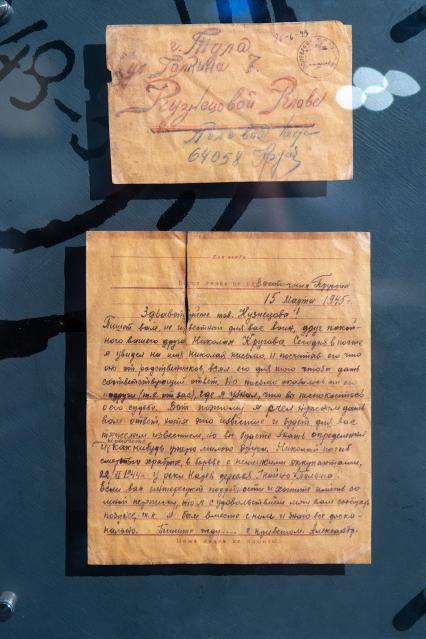 26-6-45
г. Тула
ул Галкина 7.
Кузнецовой Клаве
Полевая почта
64058
Восточная Пруссия
15 марта 1945 г.
Здравствуйте тов. Кузнецова!
Пишет вам, не известной для вас воин, друг покой-
ного вашего друга Николая Сегодня в почте
я увидел на имя Николая письмо, и посчитав его что
оно от родственников, взял его для того чтобы дать
соответствующий ответ. Но письмо оказалось от его
подруги (т.е. от вас), где я узнал, что вы беспокоитесь
о его судьбе. Вот поэтому я счел дать
вам ответ, хотя это известие и будет для вас
тяжелым известием, но вы будете знать определенно
как нибудь участь милого друга. Николай погиб
смертью храбрых, в борьбе с немецкими оккупантами,
22/ 1944г. У реки Нарев деревня Польша.
Если вас интересуют подробности и хотите иметь со
мной переписку, то я с удовольствием могу вам сообщить
позже, т.к. я был вместе с ним и знаю все доско-
нально. Пишите жду..... с приветом Александр.